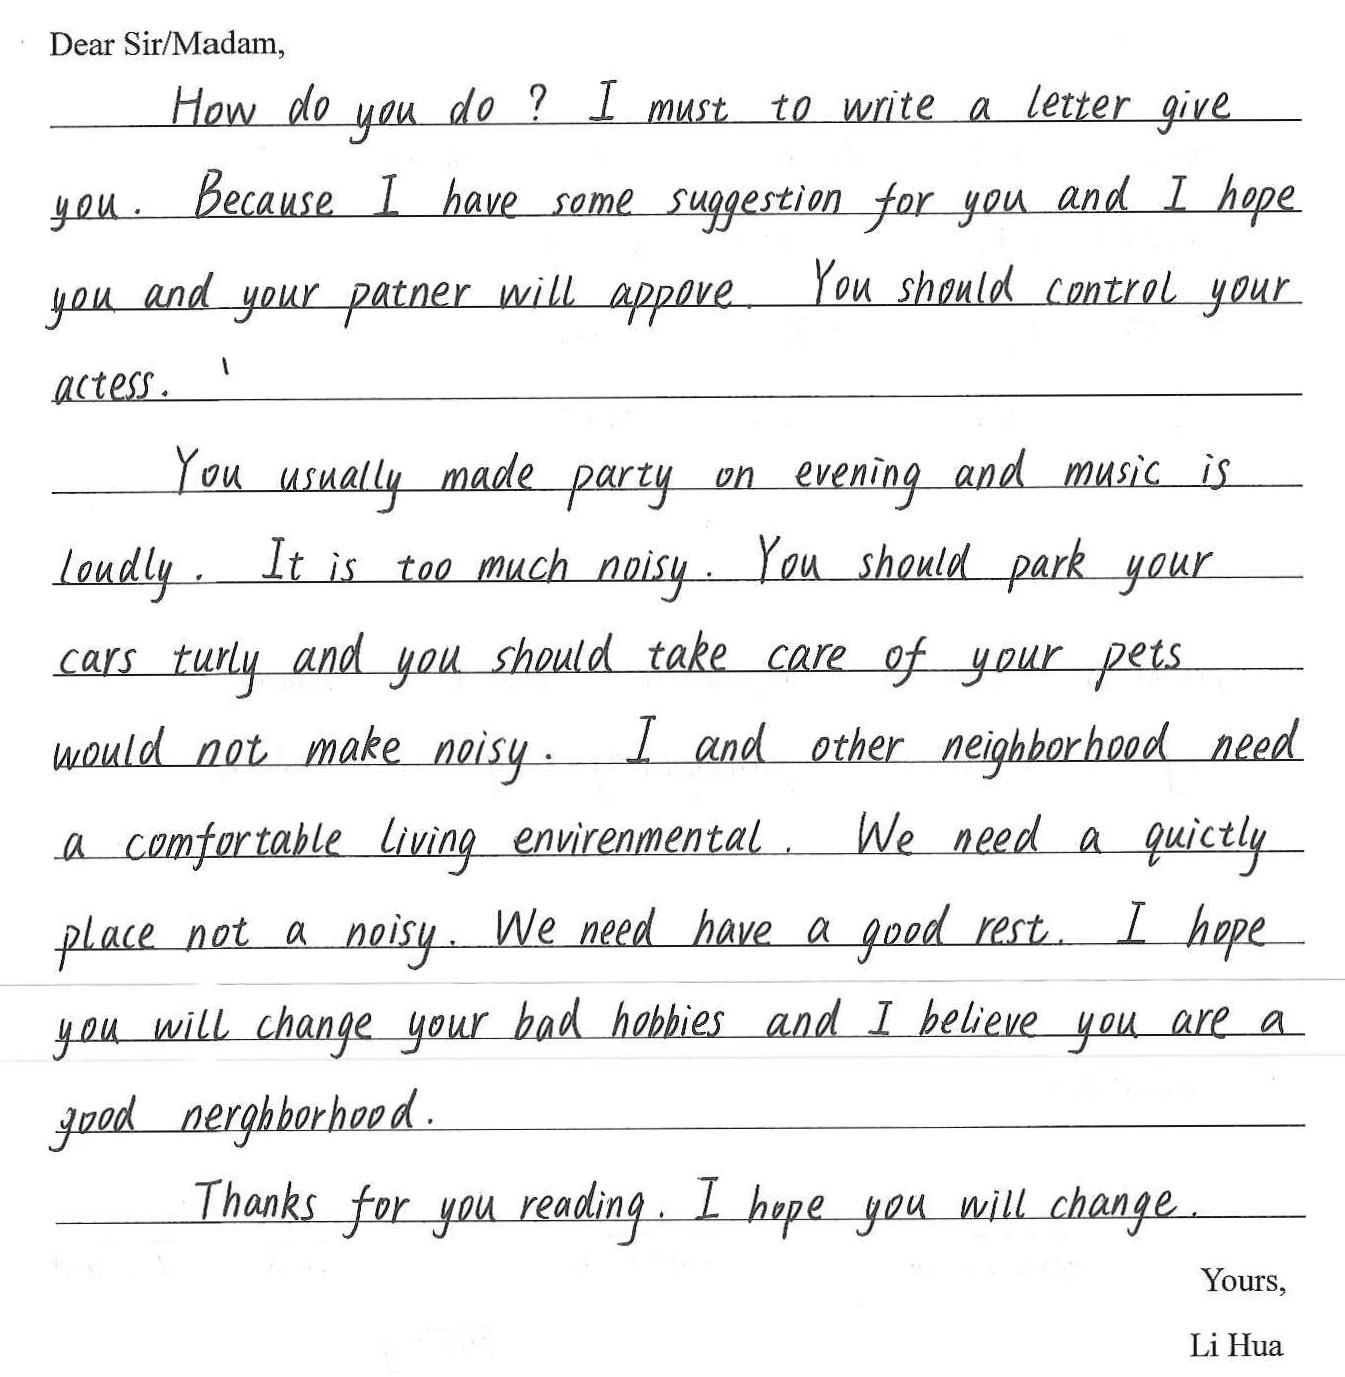 Dear Sir/Madam,
How do you do ? I must to write a letter give
you. Because I have some suggestion for you and I hope
you and your patner will appove. You should control your
actess.
You usually made party on evening and music is
loudly. It is too much noisy. You should park your
cars turly and you should take care of your pets
would not make noisy. I and other neighborhood need
a comfortable living envirenmental. We need a quictly
place not a noisy. We need have a good rest. I hope
you will change your bad hobbies and I believe you are a
good nerghborhood.
Thanks for you reading. I hope you will change.
Yours,
Li Hua